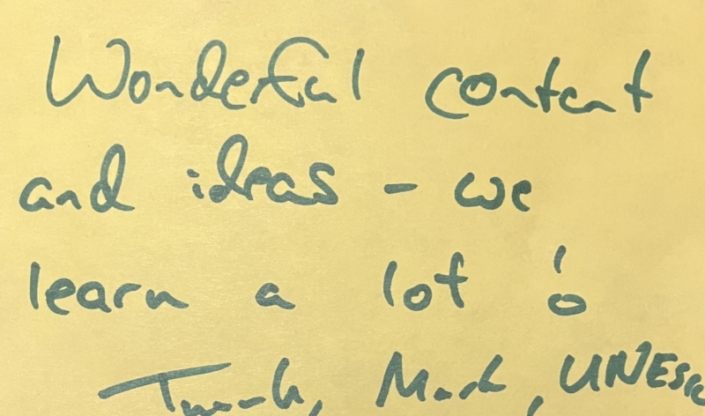 Wonderful content
and ideas - we
learn a lot !
Mark, UNESCO